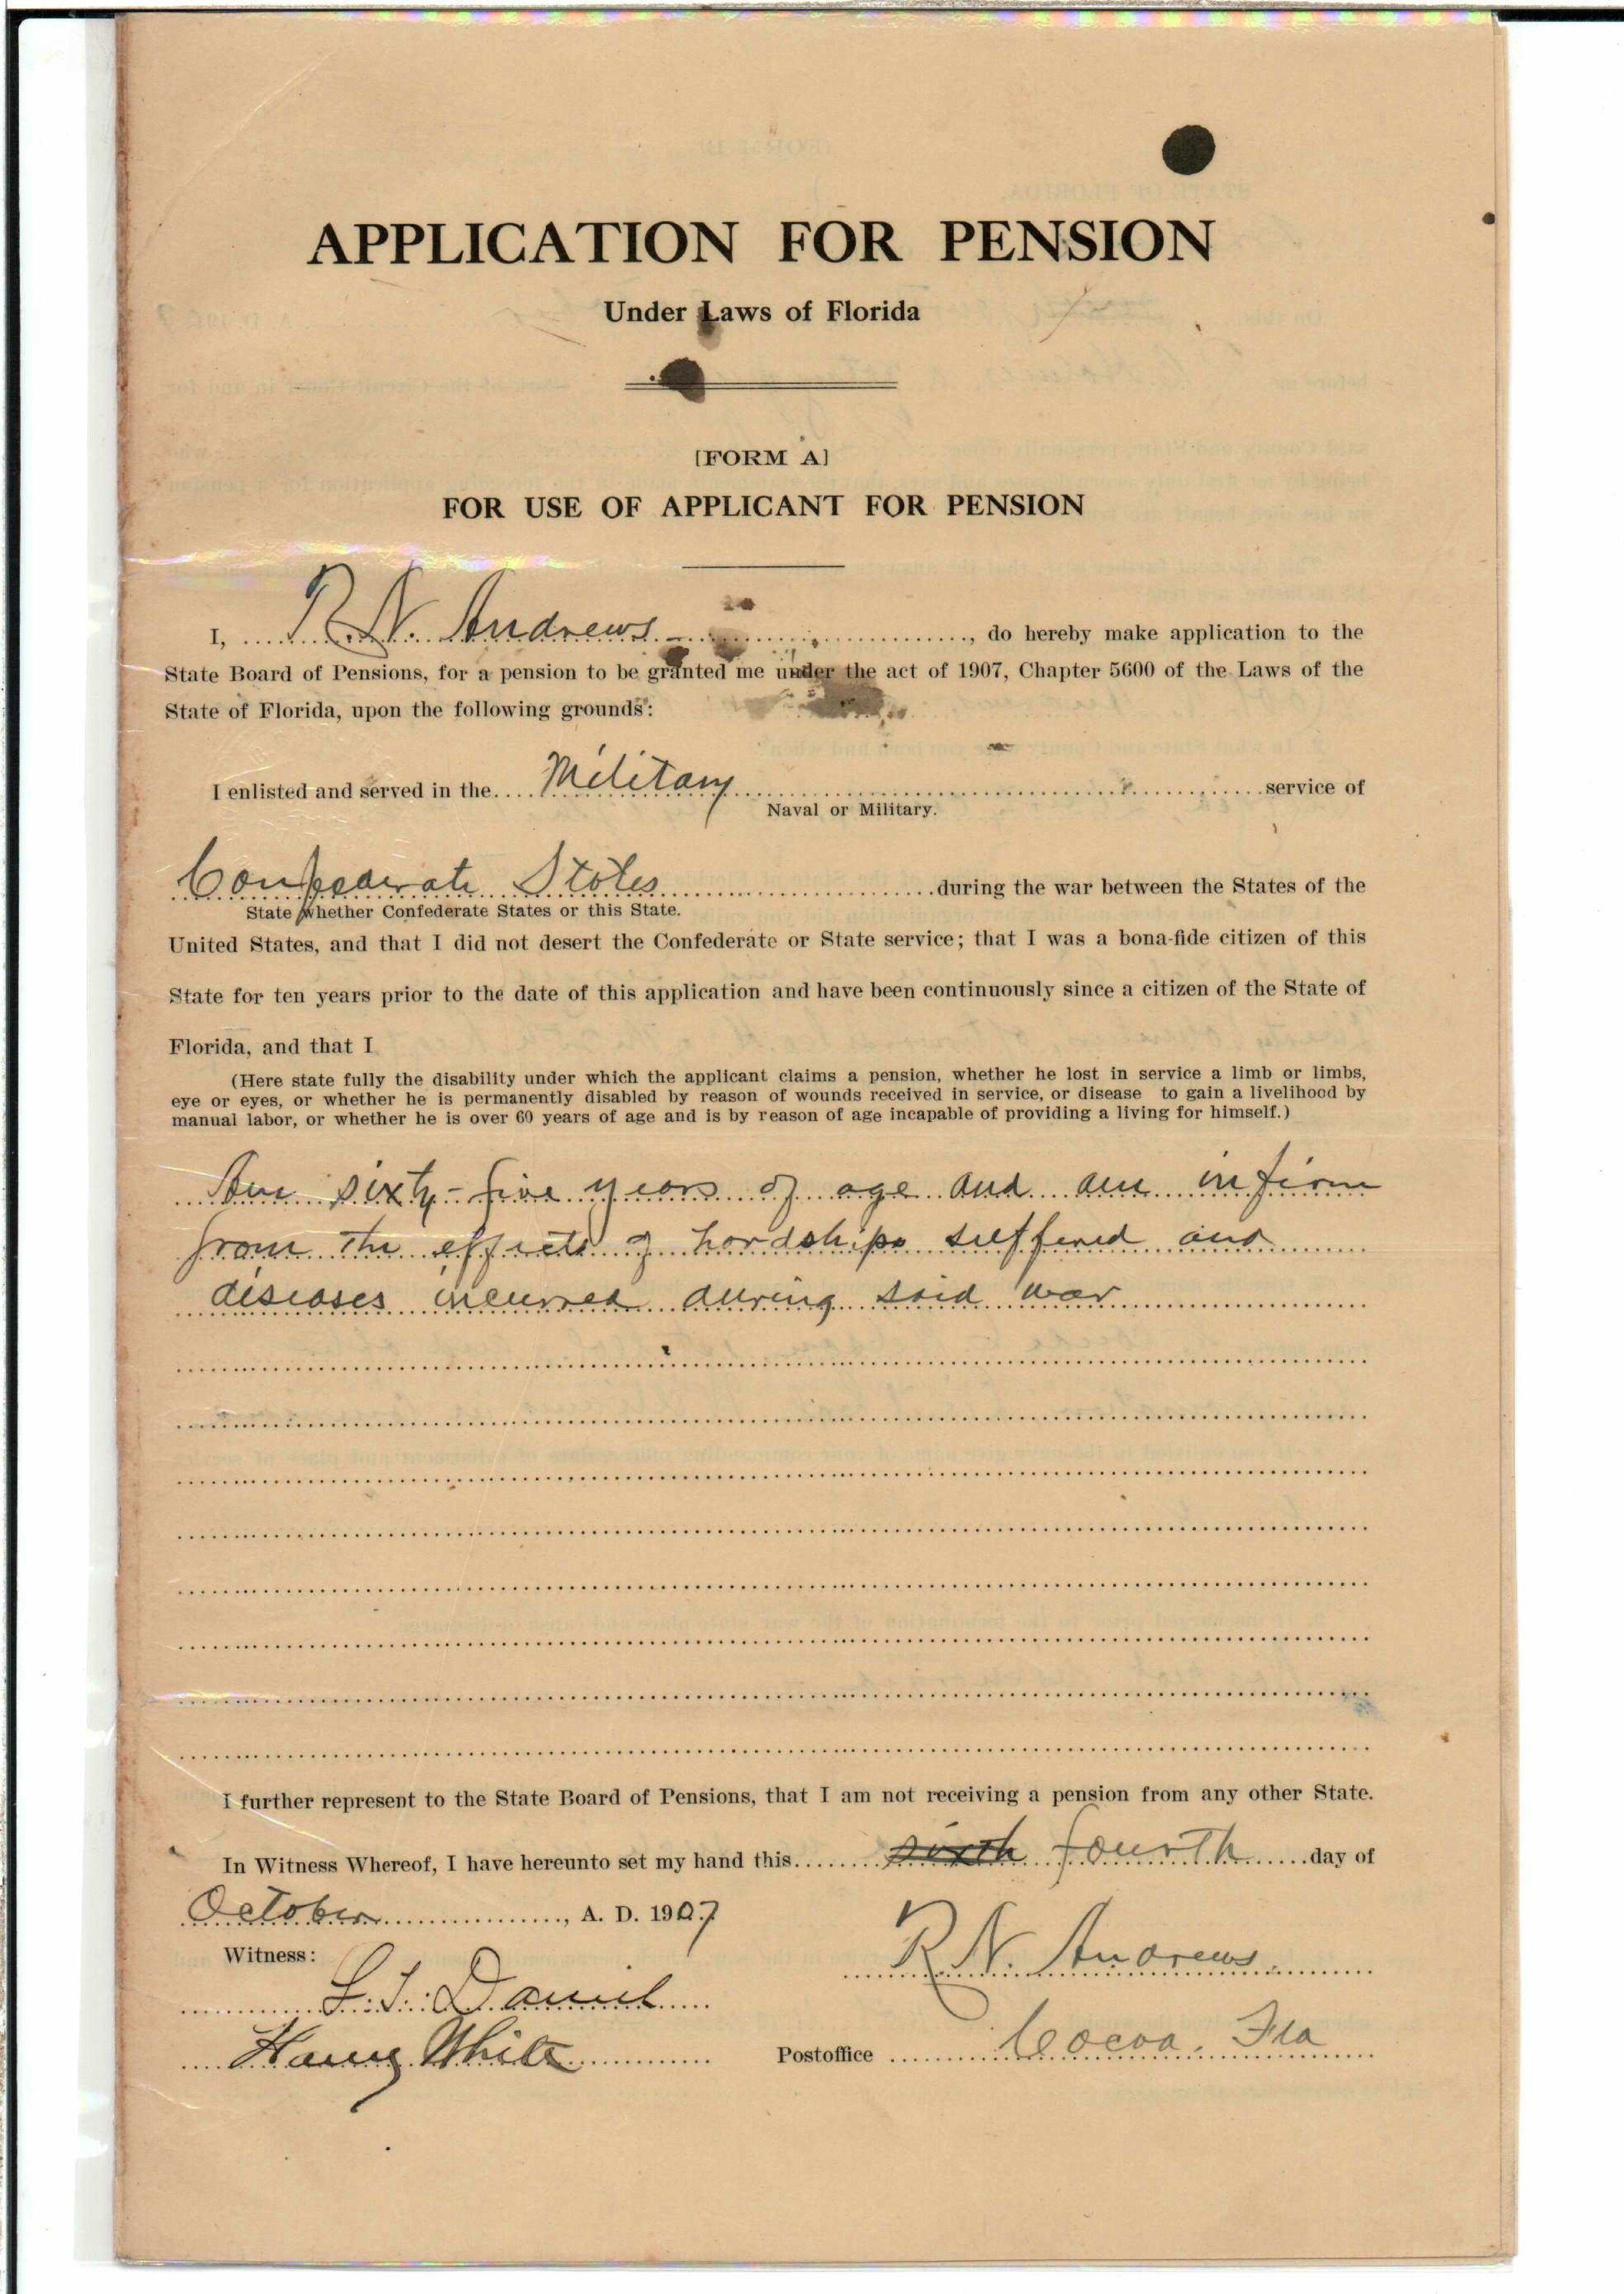 APPLICATION FOR PENSION
Under Laws of Florida
[FORM A]
FOR USE OF APPLICANT FOR PENSION
I, R. N. Andrews, do hereby make application to the
State Board of Pensions, for a pension to be granted me under the act of 1907, Chapter 5600 of the Laws of the
State of Florida, upon the following grounds:
I enlisted and served in the Military service of
Naval or Military.
Confederate States during the war between the States of the
State whether Confederate States or this State.
United States, and that I did not desert the Confederate or State service; that I was a bona-fide citizen of this
State for ten years prior to the date of this application and have been continuously since a citizen of the State of
Florida, and that I
(Here state fully the disability under which the applicant claims a pension, whether he lost in service a limb or limbs,
eye or eyes, or whether he is permanently disabled by reason of wounds received in service, or disease to gain a livelihood by
manual labor, or whether he is over 60 years of age and is by reason of age incapable of providing a living for himself.)
Am sixty-five years of age and am infirm
from the effects of hardships suffered and
diseases incurred during said war
I further represent to the State Board of Pensions, that I am not receiving a pension from any other State.
In Witness Whereof, I have hereunto set my hand this sixth fourth day of
October, A. D. 1907
Witness:
R. N. Andrews
Daniel
Harry White
Postoffice Cocoa, Fla